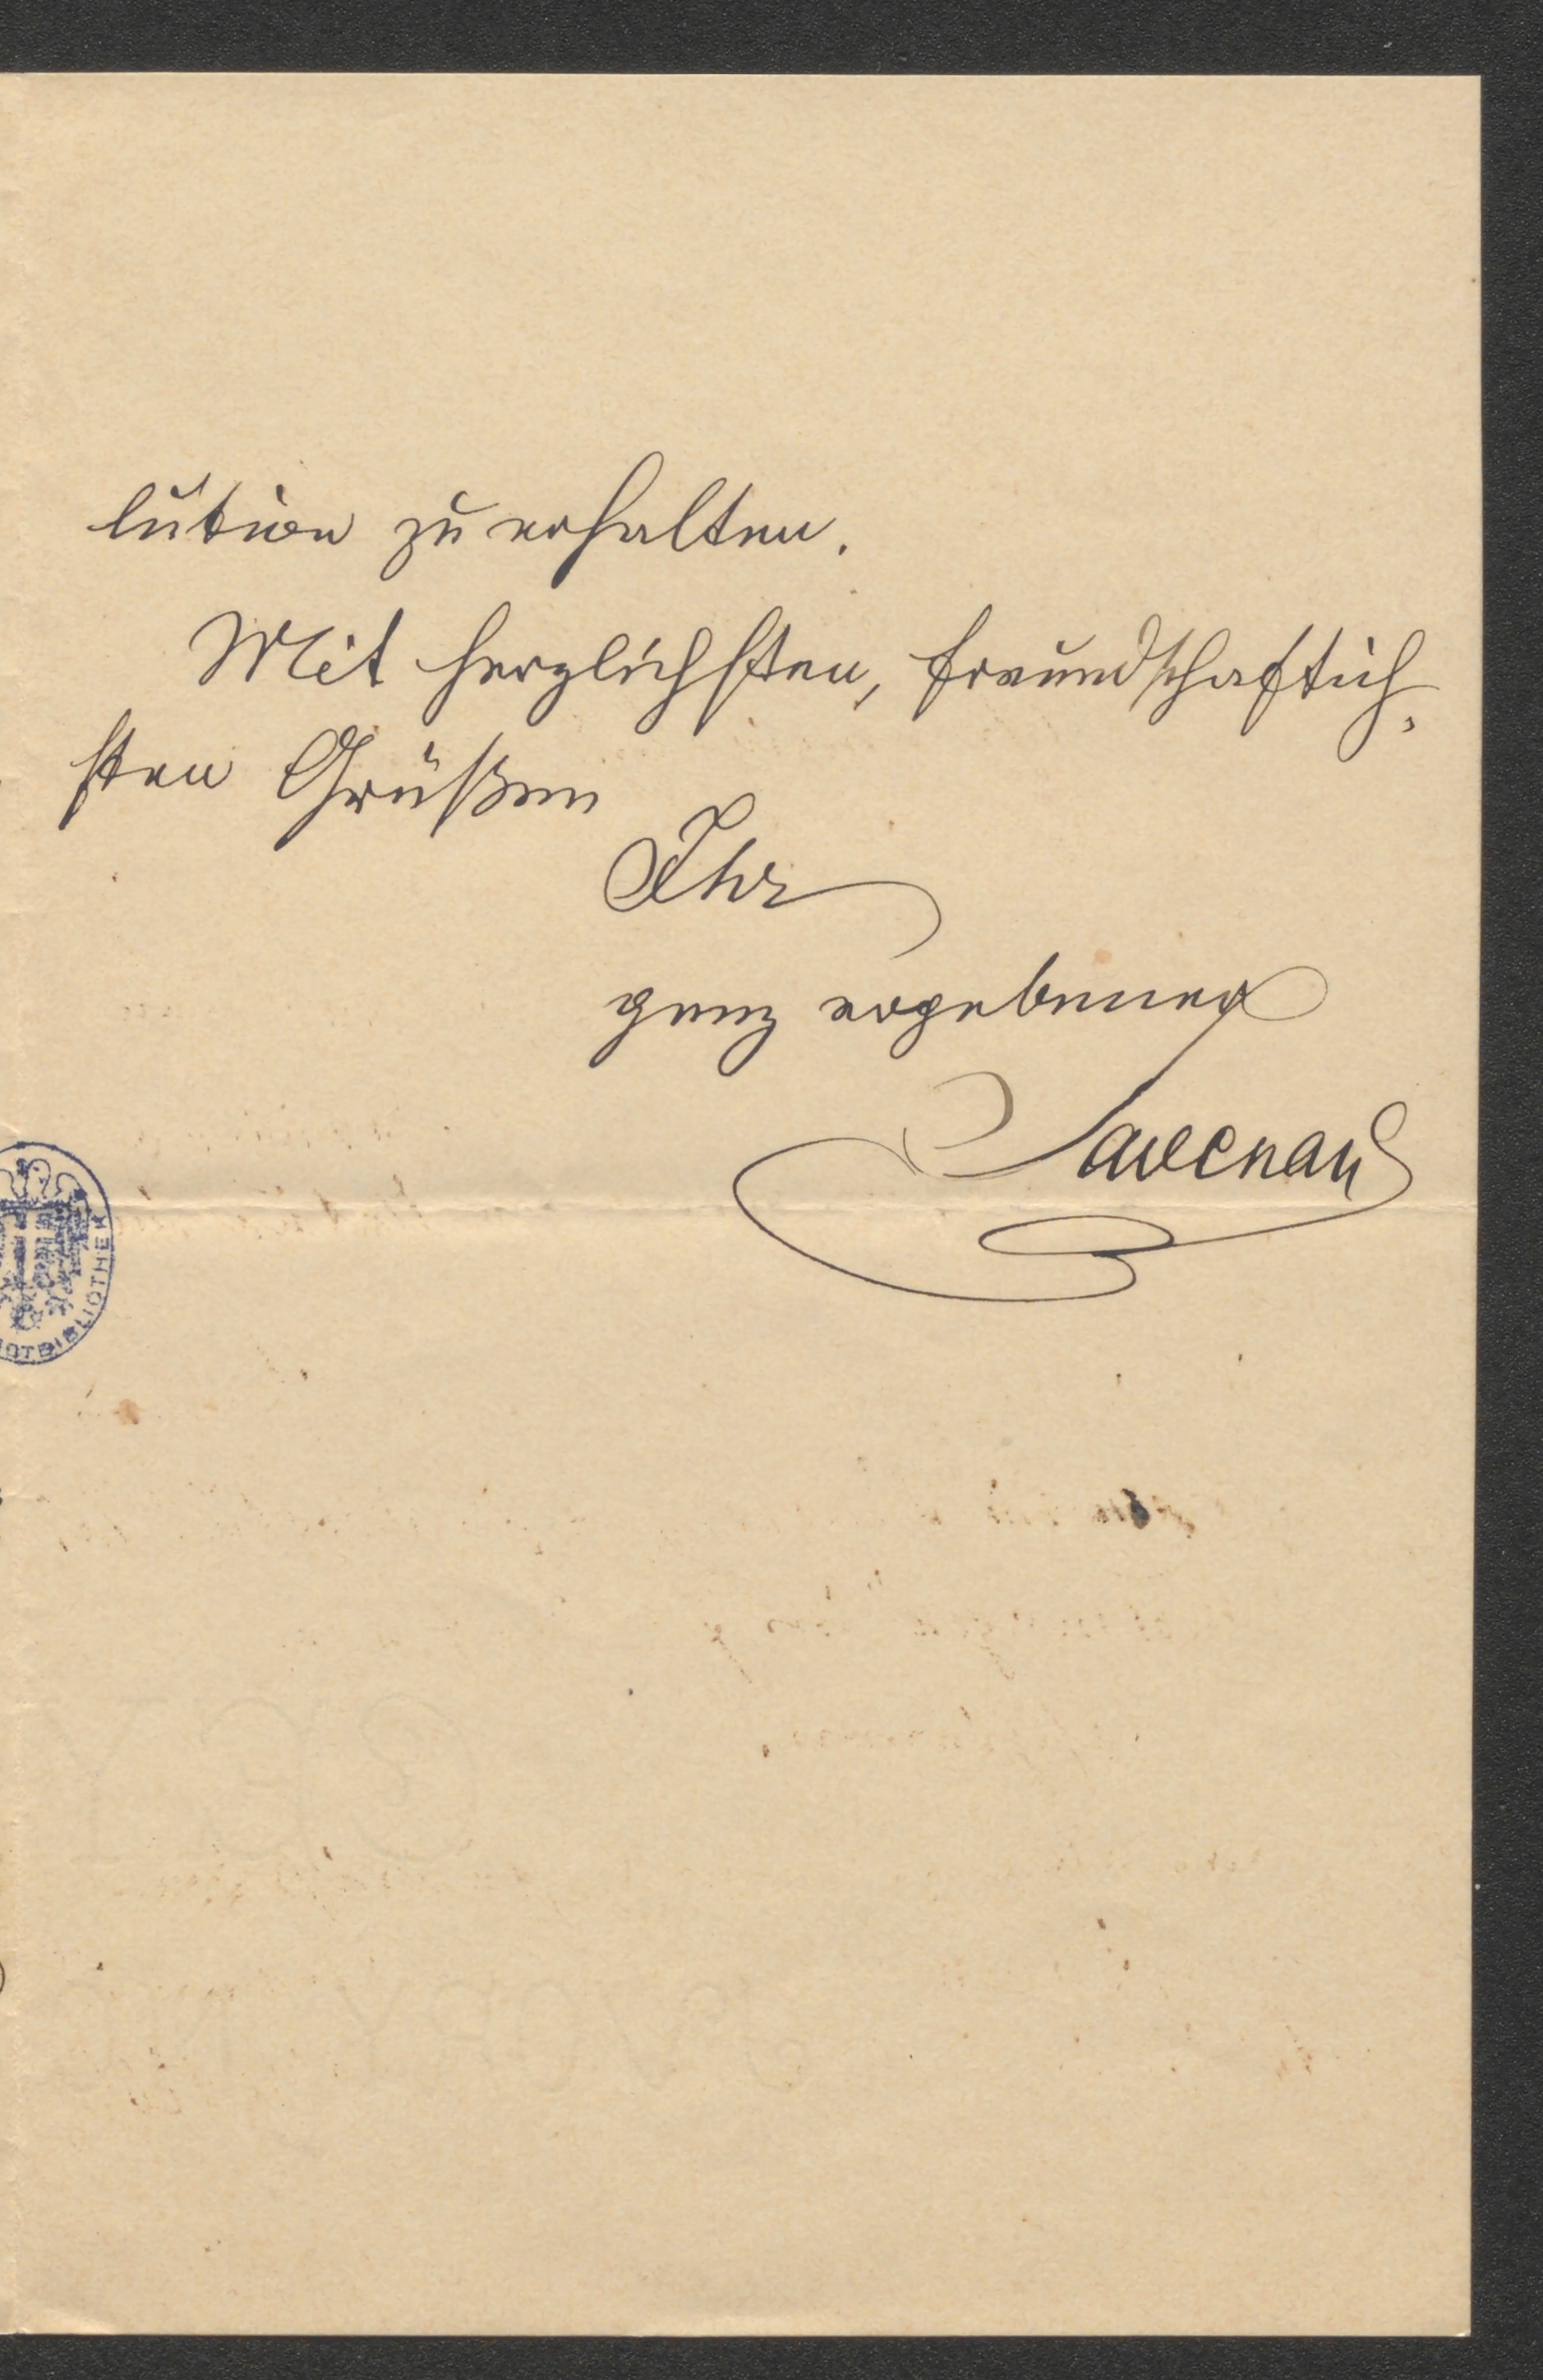 lution zu erhalten.
Mit herzlichsten, freundschaftlich-
sten Grüßen
Ihr
ganz ergebener
Savenau
BIBLIOTHEK